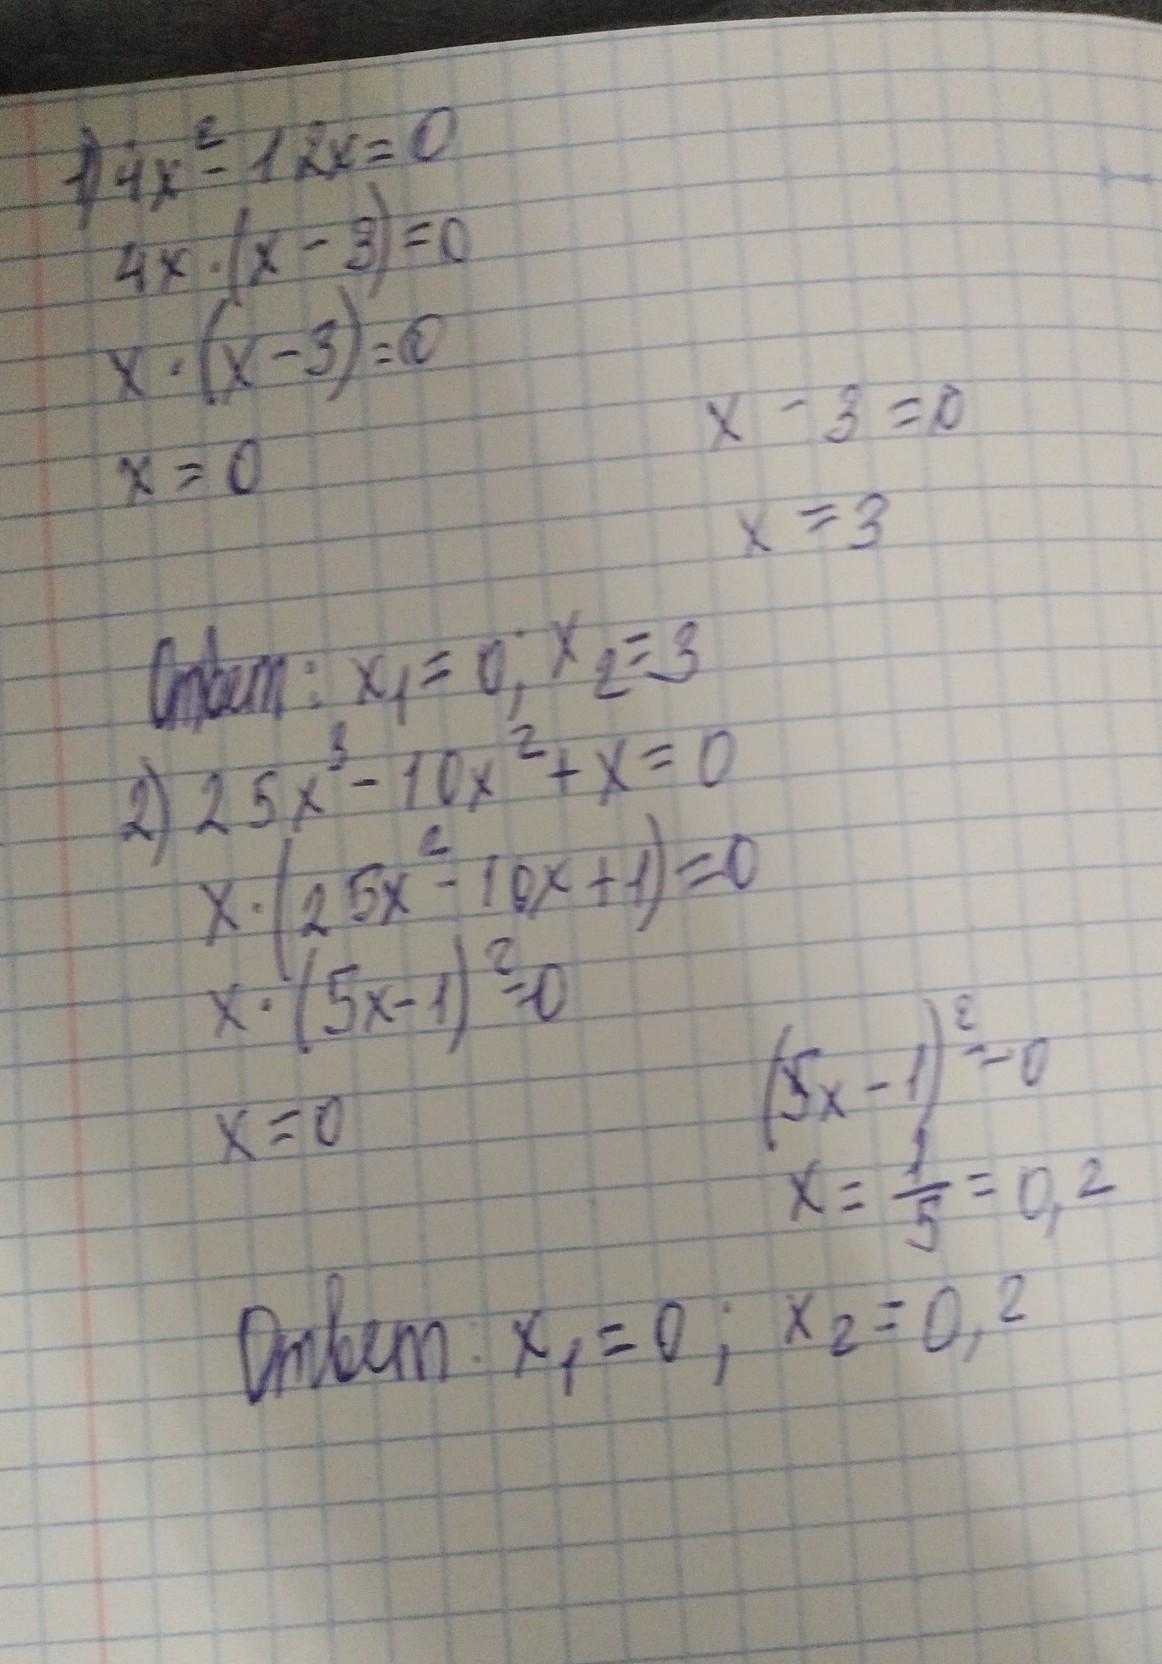 1) 4x² - 12x = 0
4x · (x - 3) = 0
x · (x - 3) = 0
x = 0
x - 3 = 0
x = 3
Ответ: x₁ = 0; x₂ = 3
2) 25x³ - 10x² + x = 0
x · (25x² - 10x + 1) = 0
x · (5x - 1)² = 0
x = 0
(5x - 1)² = 0
x = 1/5 = 0,2
Ответ: x₁ = 0; x₂ = 0,2